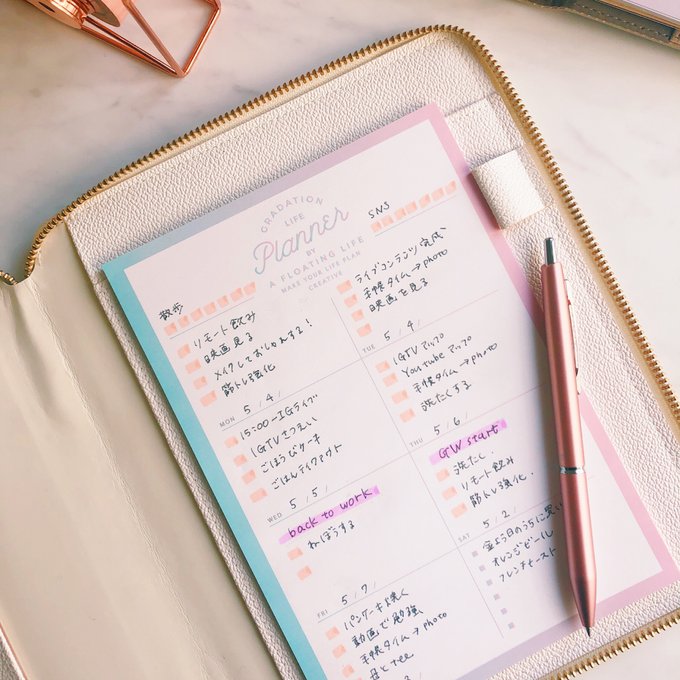 GRADATION
LIFE
Planner
BY
A FLOATING LIFE
MAKE YOUR LIFE PLAN
CREATIVE
散歩
リモート飲み
映画見る
メイクしておしゃれする！
筋トレ強化
SNS
ライブコンテンツ完成
手帳タイム→photo
映画を見る
MON 5/4/
15:00〜IGライブ
IGTVさつえい
ごほうびケーキ
ごはんテイクアウト
TUE 5/
IGTVアップ
Youtubeアップ
手帳タイム→photo
洗たくする
WED 5/5/
back to work
ねぼうする
THU 5/6/
GW start
洗たく
リモート飲み
筋トレ強化
FRI 5/7/
パンケーキ焼く
動画で勉強
手帳タイム→photo
SAT 5/2/
今日のうちに買い
オレンジピール
フレンチトースト